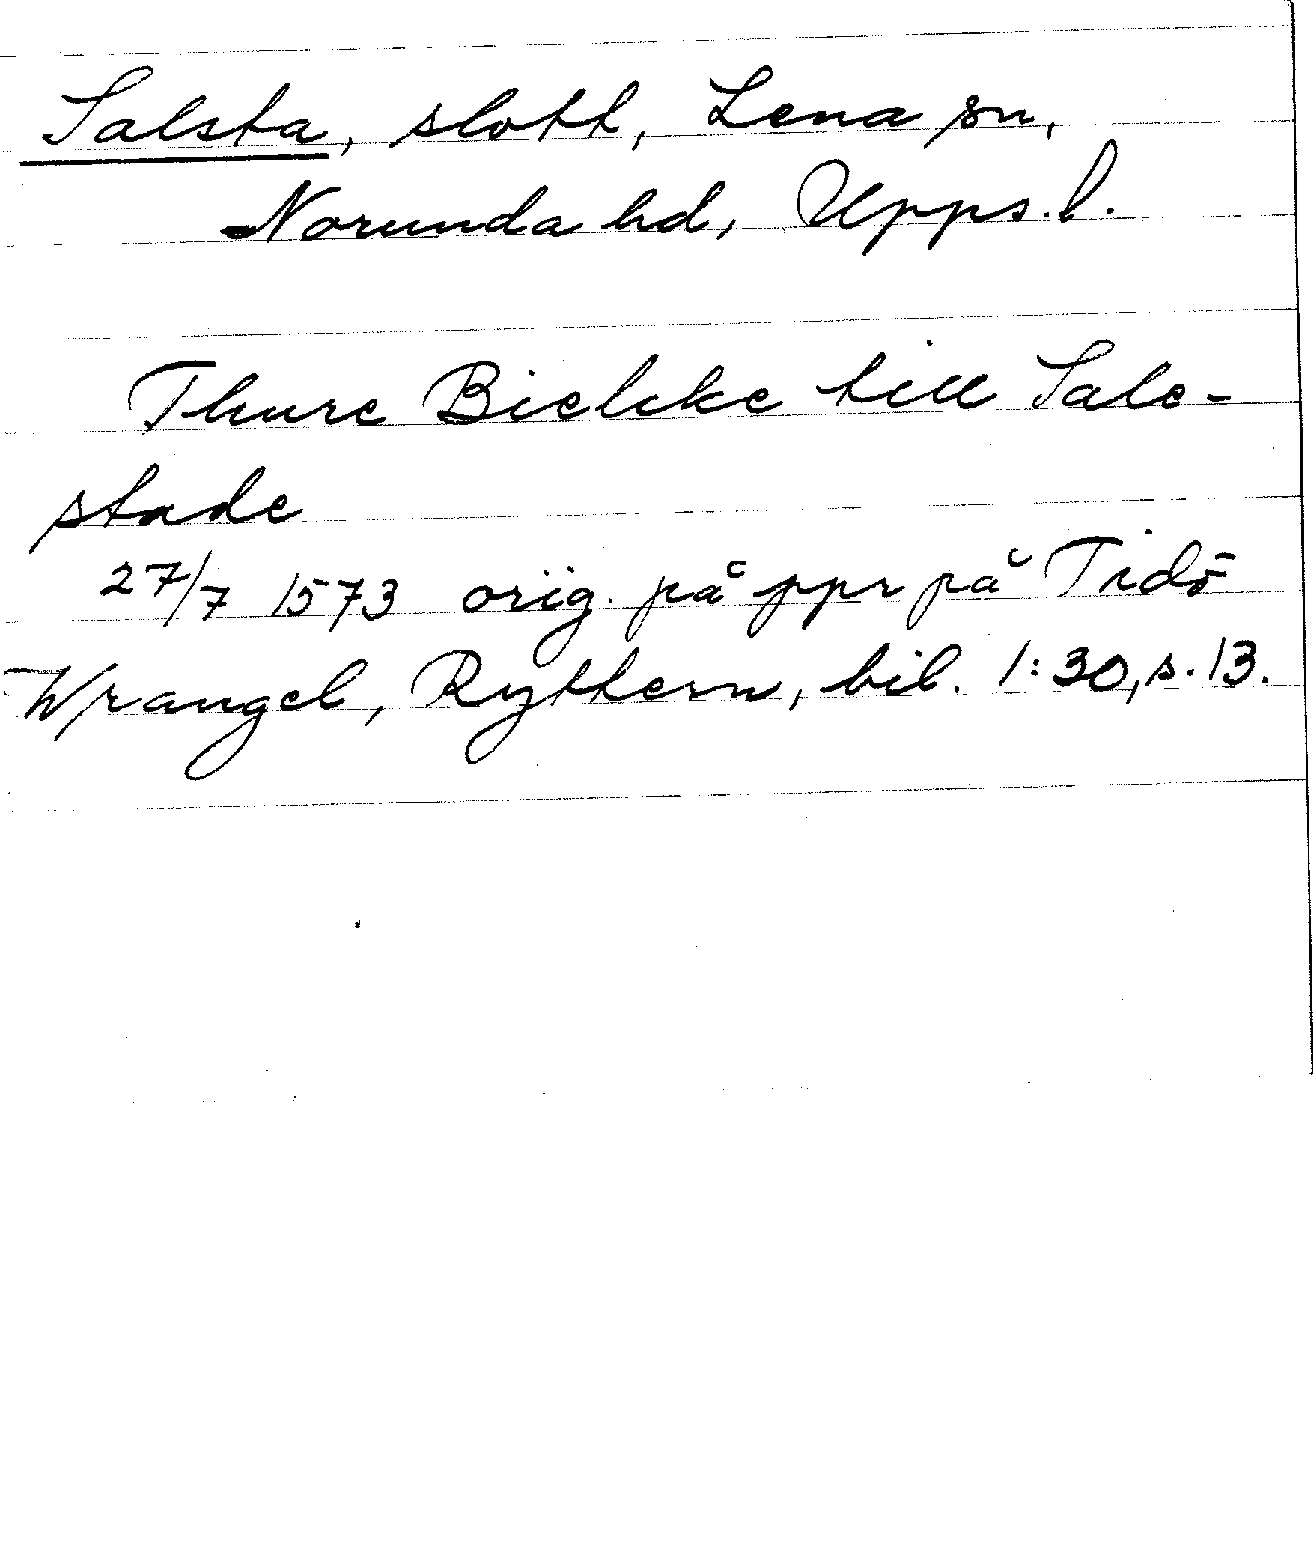 Salsta, slott, Lena sn,
Norunda hd, Upps. l.
Thure Bielcke till Sale-
stade
27/7 1573 orig. på ppr på Tidö
Wrangel, Ryttern, bil. 1:30, s. 13.